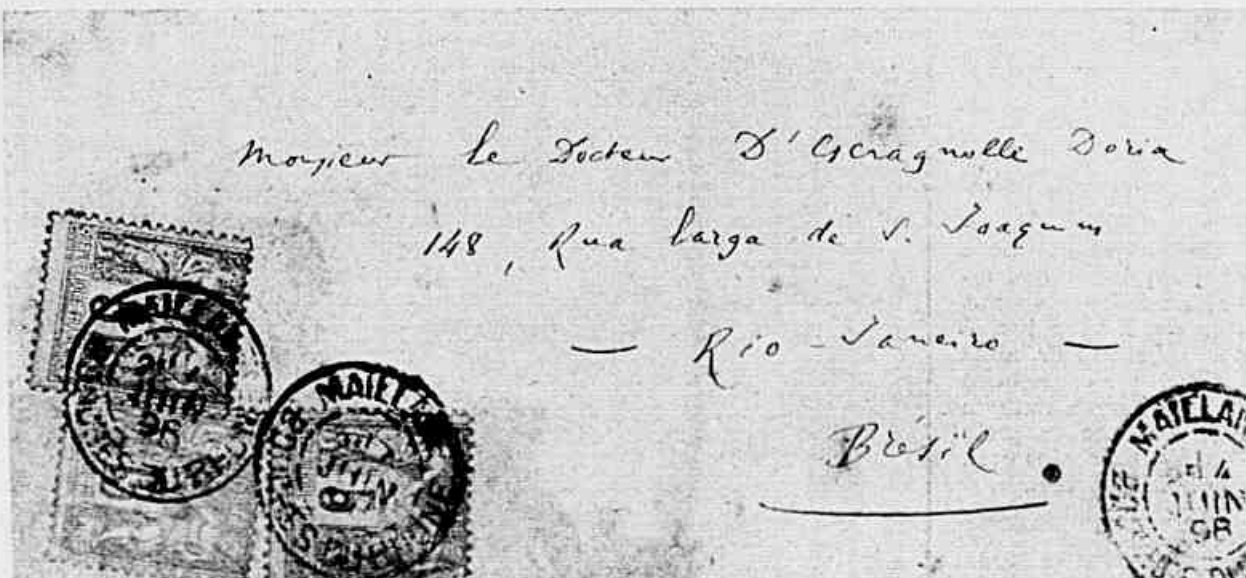 Monsieur le Docteur D'Escragnolle Doria
148, Rua larga de S. Joaquim
— Rio-Janeiro —
Brésil.
MATELA
JUIN
98
MATELA
JUIN
MATELA
4
JUIN
98